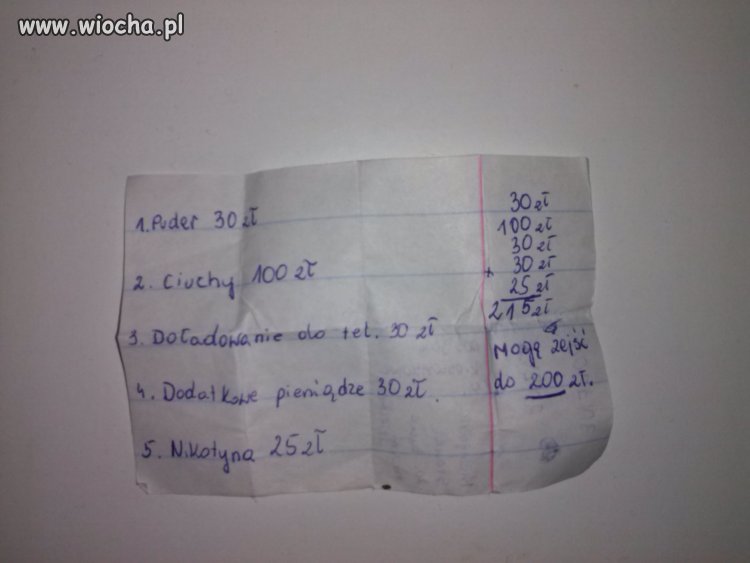 www.wiocha.pl
1. Puder 30 zł
2. Ciuchy 100 zł
3. Doładowanie do tel. 30 zł
4. Dodatkowe pieniądze 30 zł.
5. Nikotyna 25 zł
30 zł
100 zł
30 zł
+ 30 zł
25 zł
215 zł
Mogę zejść
do 200 zł.